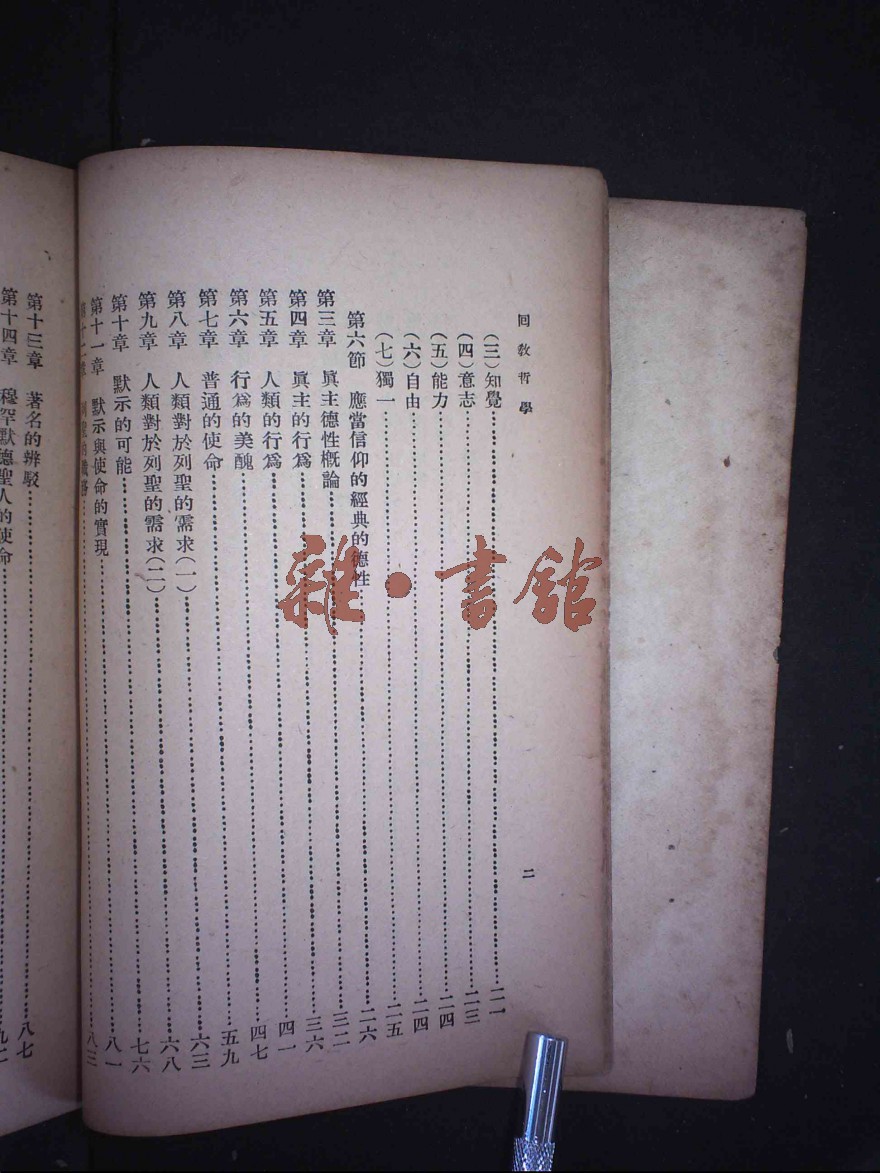 回教哲學 二
(三)知覺 二一
(四)意志 二三
(五)能力 二四
(六)自由 二四
(七)獨一 二五
第六節 應當信仰的經典的德性 二六
第三章 眞主德性槪論 三二
第四章 眞主的行爲 三六
第五章 人類的行爲 四一
第六章 行爲的美醜 四七
第七章 普通的使命 五九
第八章 人類對於列聖的需求(一) 六三
第九章 人類對於列聖的需求(二) 六八
第十章 默示的可能 七六
第十一章 默示與使命的實現 八一
八三
第十三章 著名的辨駁 八七
第十四章 穆罕默德聖人的使命
雜·書館